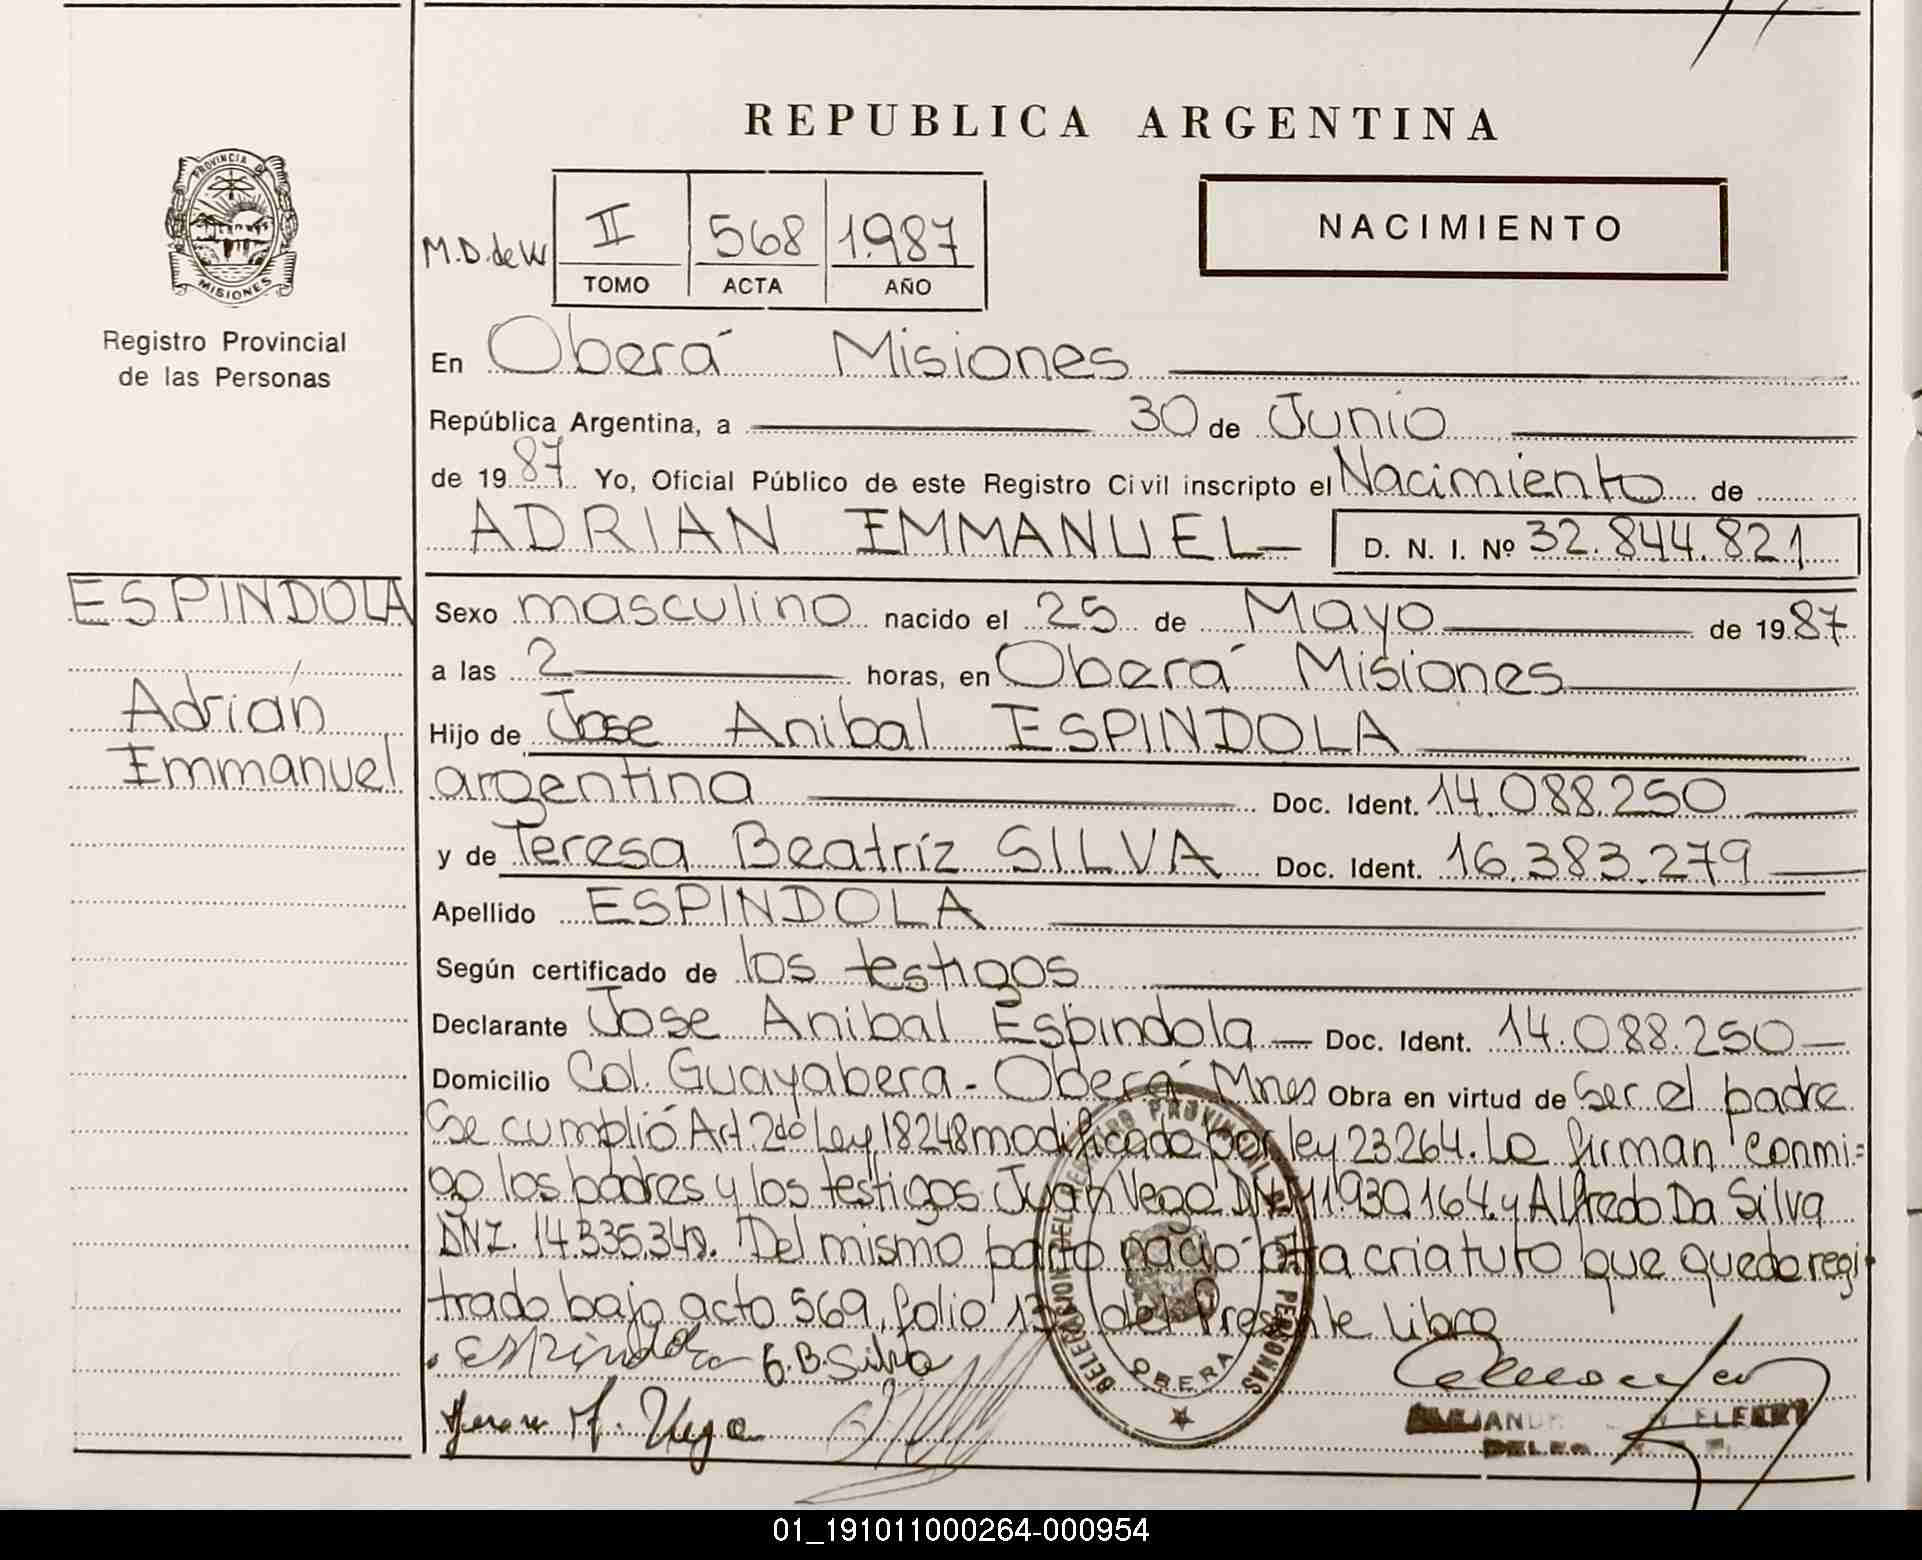 REPUBLICA ARGENTINA
PROVINCIA DE
MISIONES
Registro Provincial
de las Personas
NACIMIENTO
M.D. de W II 568 1.987
TOMO ACTA AÑO
En Oberá Misiones
República Argentina, a 30 de Junio
de 1987 Yo, Oficial Público de este Registro Civil inscripto el Nacimiento de
ADRIAN EMMANUEL D. N. I. Nº 32.844.821
ESPINDOLA
Adrián
Emmanuel
Sexo masculino nacido el 25 de Mayo de 1987
a las 2 horas, en Oberá Misiones
Hijo de Jose Anibal ESPINDOLA
argentina Doc. Ident. 14.088.250
y de Teresa Beatríz SILVA Doc. Ident. 16.383.279
Apellido ESPINDOLA
Según certificado de los testigos
Declarante Jose Anibal Espindola Doc. Ident. 14.088.250
Domicilio Col. Guayabera - Oberá Mnes Obra en virtud de ser el padre
Se cumplió Art. 2do Ley 18248 modificado por ley 23264. La firman conmi=
go los padres y los testigos Juan Vega DNI 11.930.164. y Alfredo Da Silva
DNI. 14.335.340. Del mismo parto nació otra criatura que queda regi
trado bajo acta 569, folio del Presente Libro
Espindola G.B. Silva
Vega
DELEGACION DEL REGISTRO PROVINCIAL DE LAS PERSONAS
OBERA
01_191011000264-000954